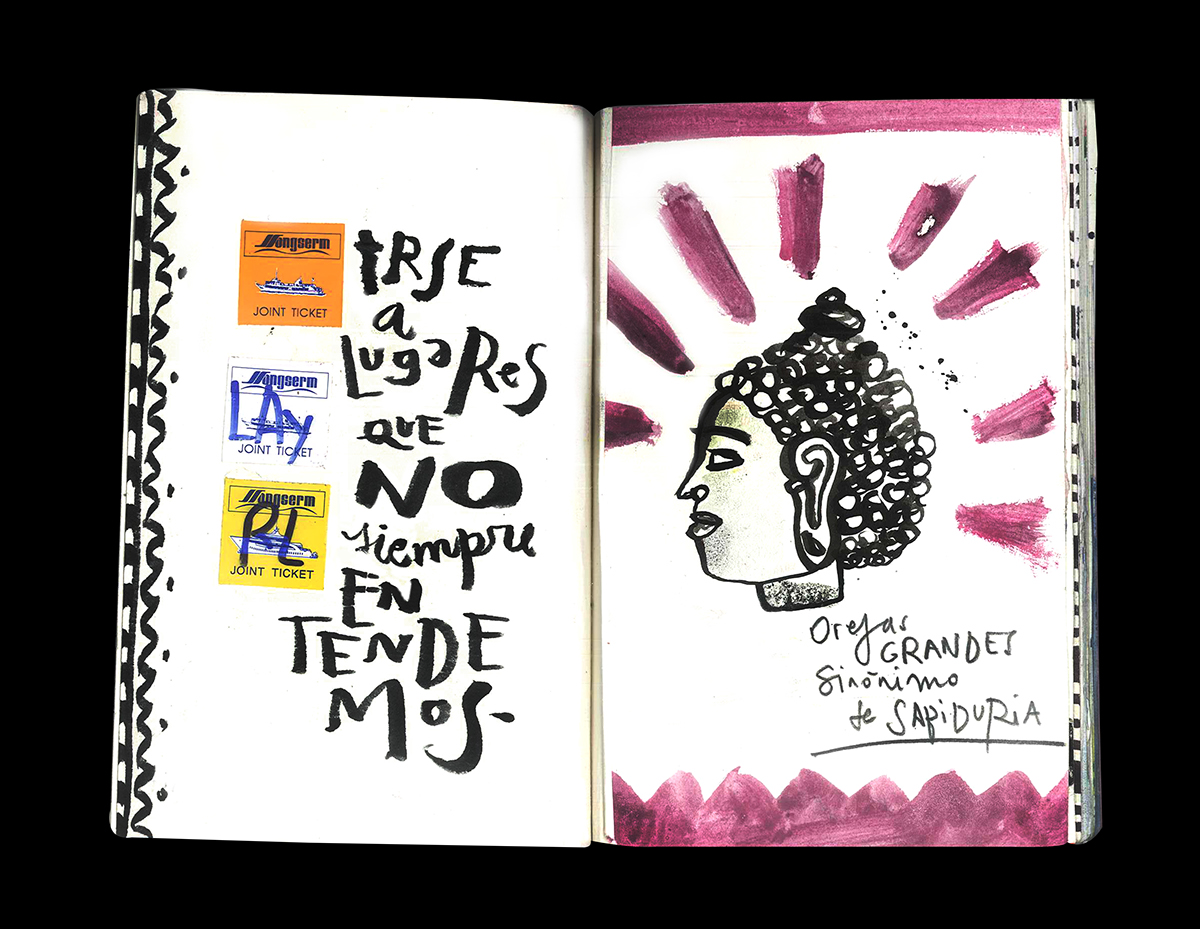 Songserm
JOINT TICKET
Songserm
LAy
JOINT TICKET
Songserm
PL
JOINT TICKET
IRSE
a
LUgaRes
QUE
NO
siempre
EN
TENDE
MOS-
Orejas
GRANDES
Sinónimo
de SAPIDURIA